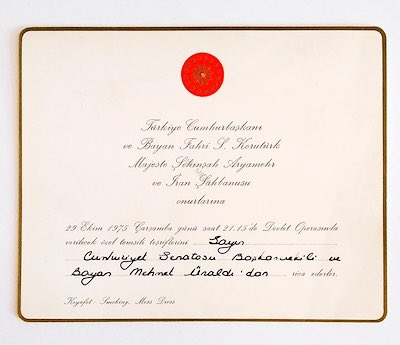 Türkiye Cumhurbaşkanı
ve Bayan Fahri S. Korutürk
Majeste Şehinşah Aryamehr
ve İran Şahbanusu
onurlarına
29 Ekim 1975 Çarşamba günü saat 21.15 de Devlet Operasında
verilecek özel temsili teşriflerini Sayın
Cumhuriyet Senatosu Başkanvekili ve
Bayan Mehmet Ünaldı'dan rica ederler.
Kıyafet : Smoking, Mess Dress